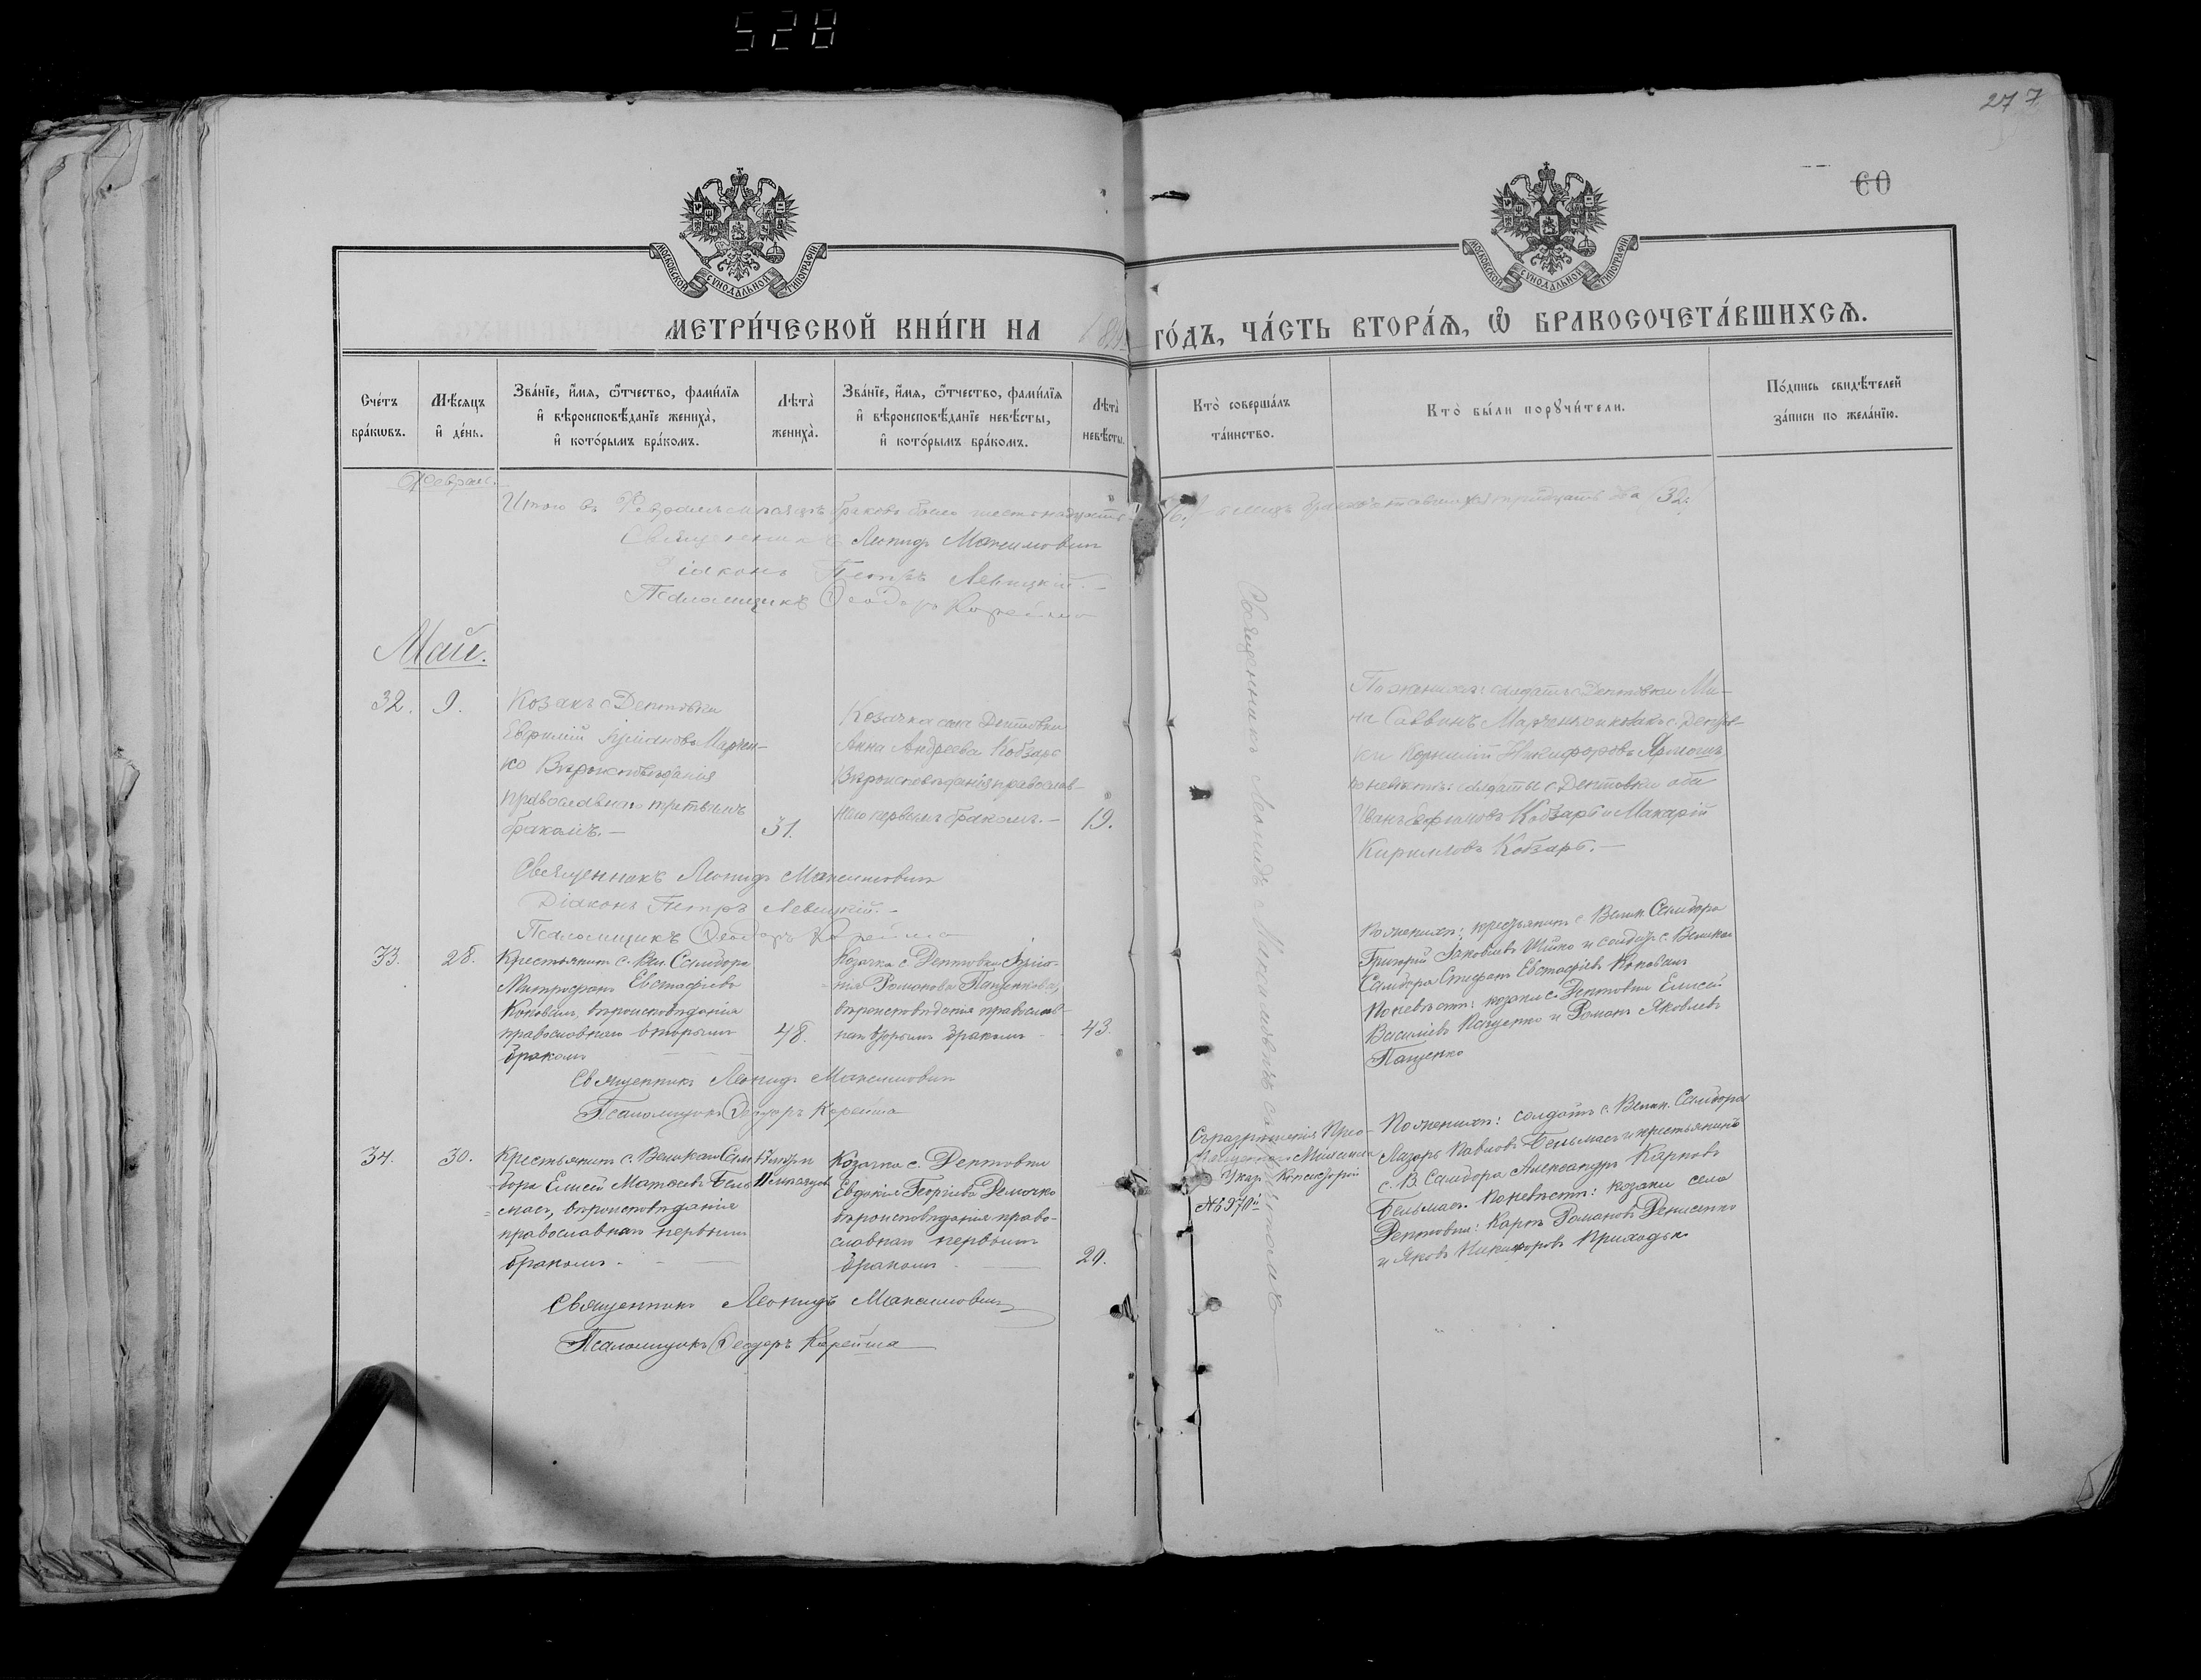 528
277
60
МОСКОВСКОЙ СѴНОДАЛЬНОЙ ТИПОГРАФІИ
МОСКОВСКОЙ СѴНОДАЛЬНОЙ ТИПОГРАФІИ
МЕТРИ́ЧЕСКОЙ КНИ́ГИ НА
ГО́ДЪ, ЧА́СТЬ ВТОРА́Я, Ѽ БРАКОСОЧЕТА́ВШИХСЯ.
Сче́тъ
бра́кѡвъ.
Мѣ́сяцъ
и҆ де́нь.
Зва́нїе, и҆́мя, ѻ҆́тчество, фами́лїя
и҆ вѣроисповѣ́данїе жениха̀,
и҆ кото́рымъ бра́комъ.
Лѣта̀
жениха̀.
Зва́нїе, и҆́мя, ѻ҆́тчество, фами́лїя
и҆ вѣроисповѣ́данїе невѣ́сты,
и҆ кото́рымъ бра́комъ.
Лѣта̀
невѣ́сты.
Кто̀ соверша́лъ
та́инство.
Кто̀ бы́ли порꙋчи́тели.
По́дпись свидѣ́телей
за́писи по жела́нїю.
Итого въ Февралѣ мѣсяцѣ браковъ было шестнадцать
тридцать два (32.)
Священникъ Леонидъ Максимовичъ
Діаконъ Петръ Левицкій.
Псаломщикъ Ѳеодоръ Корейша
Май.
32.
9.
Козакъ с. Дептовки
Марчен-
ко Вѣроисповѣданія
православнаго третьимъ
бракомъ. —
31.
Козачка села Дептовки
Анна Андреева Кобзарь
Вѣроисповѣданія православ-
наго первымъ бракомъ. —
19.
По женихѣ: солдатъ с. Дептовки Ми-
на Саввинъ Марченко и козакъ с. Дептов-
ки Корнилій Никифоровъ Ярмошъ,
по невѣстѣ: солдаты с. Дептовки оба
Кобзарь и Макарій
Кирилловъ Кобзарь. —
Священникъ Леонидъ Максимовичъ
Діаконъ Петръ Левицкій. —
Псаломщикъ Ѳеодоръ Корейша
33.
28.
Крестьянинъ с. Вел. Самбора
Митрофанъ Евстафіевъ
Коновалъ, вѣроисповѣданія
православнаго вторымъ
бракомъ
48.
Козачка с. Дептовки Іулiа-
нія Романова Пащенкова,
вѣроисповѣданія православ-
наго вторымъ бракомъ
43.
По женихѣ: крестьянинъ с. Велик. Самбора
Григорій Яковлевъ Шийко и солдатъ с. Великаго
Самбора Стефанъ Евстафіевъ Коновалъ
По невѣстѣ: козаки с. Дептовки Елисей
Василіевъ Пащенко и Романъ Яковлевъ
Пащенко
Священникъ Леонидъ Максимовичъ
Псаломщикъ Ѳеодоръ Корейша
34.
30.
Крестьянинъ с. Великаго Сам-
бора Елисей Матѳеевъ Бель-
масъ, вѣроисповѣданія
православнаго первымъ
бракомъ.
17 лѣтъ и
11 мѣсяцовъ
Козачка с. Дептовки
Евдокія Георгіева Демочко
вѣроисповѣданія право-
славнаго первымъ
бракомъ
20.
Указ. Консисторіи
По женихѣ: солдатъ с. Велик. Самбора
Лазарь Павловъ Бельмасъ и крестьянинъ
с. В. Самбора Александръ Карповъ
Бельмасъ. По невѣстѣ: козаки села
Дептовки: Карпъ Романовъ Денисенко
и Яковъ Никифоровъ Приходько
Священникъ Леонидъ Максимовичъ
Псаломщикъ Ѳеодоръ Корейша
Священникъ Леонидъ Максимовичъ